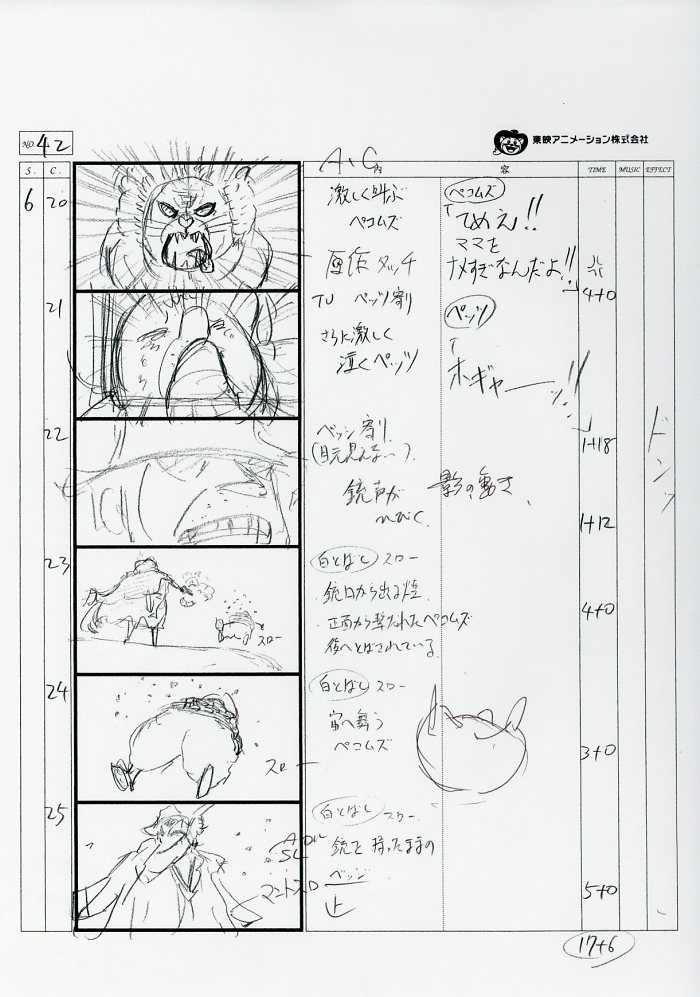 NO. 42
東映アニメーション株式会社
S. C. 内 容 TIME MUSIC EFFECT
A・C
6 20
激しく叫ぶ
ペコムズ
原作タッチ
ペコムズ
「てめえ!!
ママを
ナメすぎなんだよ!!」
4+0
21
TU ペッツ寄り
さらに激しく
泣くペッツ
ペッツ
「ホギャーッ!!」
1+18
22
ベッジ寄り
(目元見えない)
銃声が
ひびく
影の動き、
ドンッ
1+12
23
白とばし スロー
・銃口から出る煙
・正面から撃たれたペコムズ
後へとばされている
スロー
4+0
24
白とばし スロー
宙へ舞う
ペコムズ
スロー
3+0
25
白とばし スロー
銃を持ったままの
ベッジ
止
マントスロ
5+0
17+6